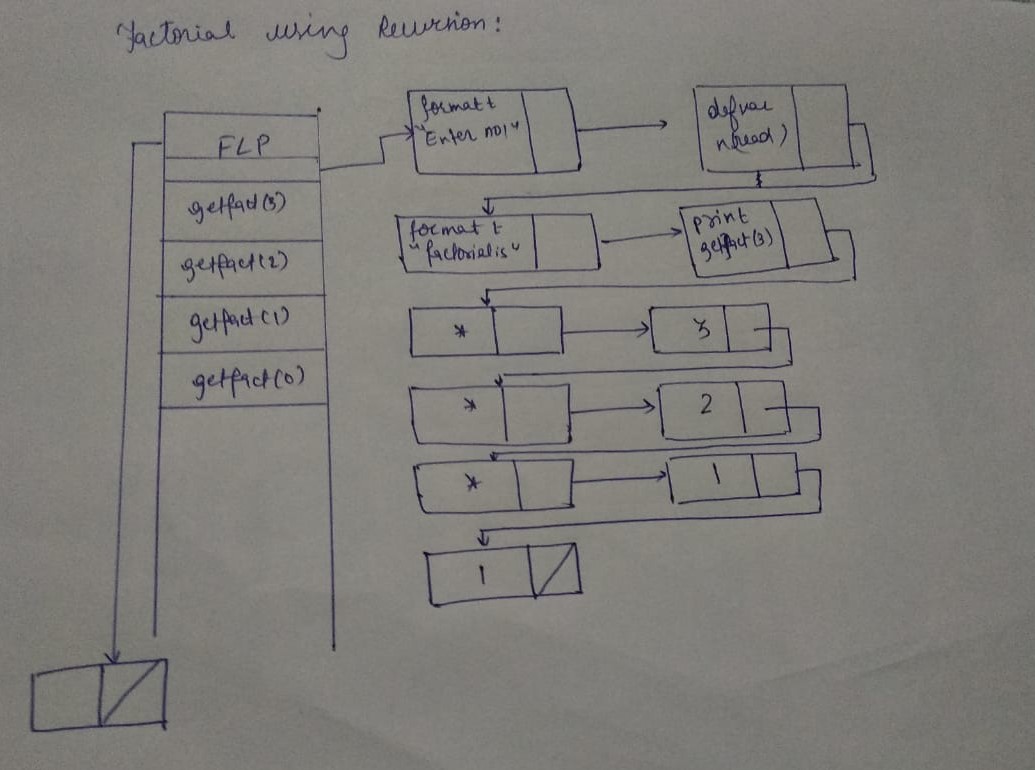 Factorial using Recursion:
FLP
getfact(3)
getfact(2)
getfact(1)
getfact(0)
format t
"Enter no1"
defvar
n(read)
format t
"factorialis"
print
getfact(3)
*
3
*
2
*
1
1